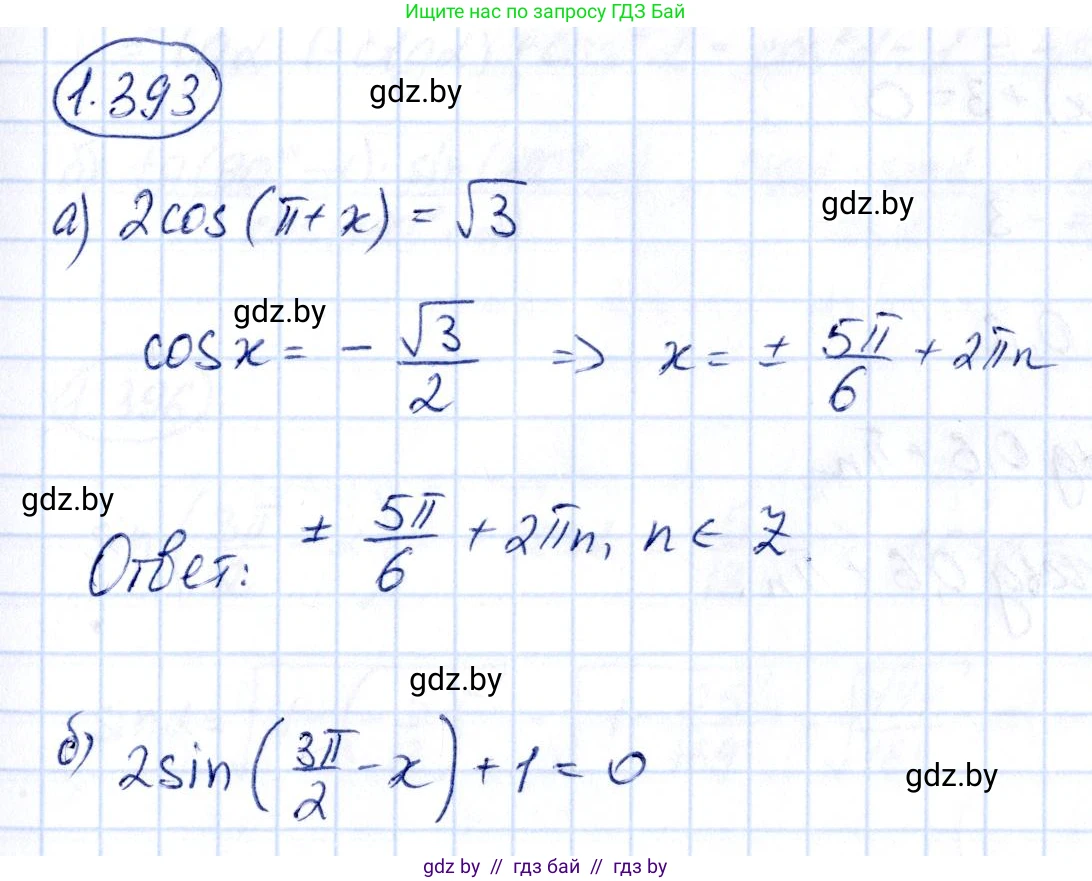 Ищите нас по запросу ГДЗ Бай
1.393
gdz.by
а) 2cos(π+x) = √3
gdz.by
gdz.by
cos x = - √3/2 => x = ± 5π/6 + 2πn
gdz.by
Ответ: ± 5π/6 + 2πn, n ∈ Z.
gdz.by
б) 2sin(3π/2 - x) + 1 = 0
gdz.by
gdz by // гдз бай // гдз by